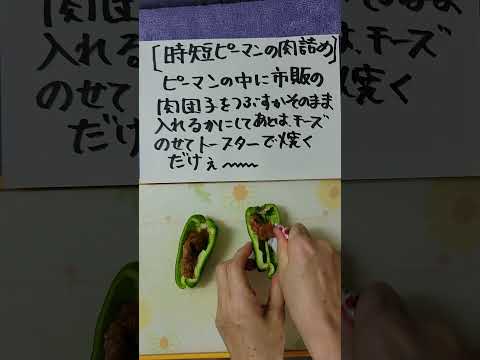 [時短ピーマンの肉詰め]
ピーマンの中に市販の
肉団子をつぶすかそのまま
入れるかにしてあとは、チーズ
のせてトースターで焼く
だけぇ〜〜